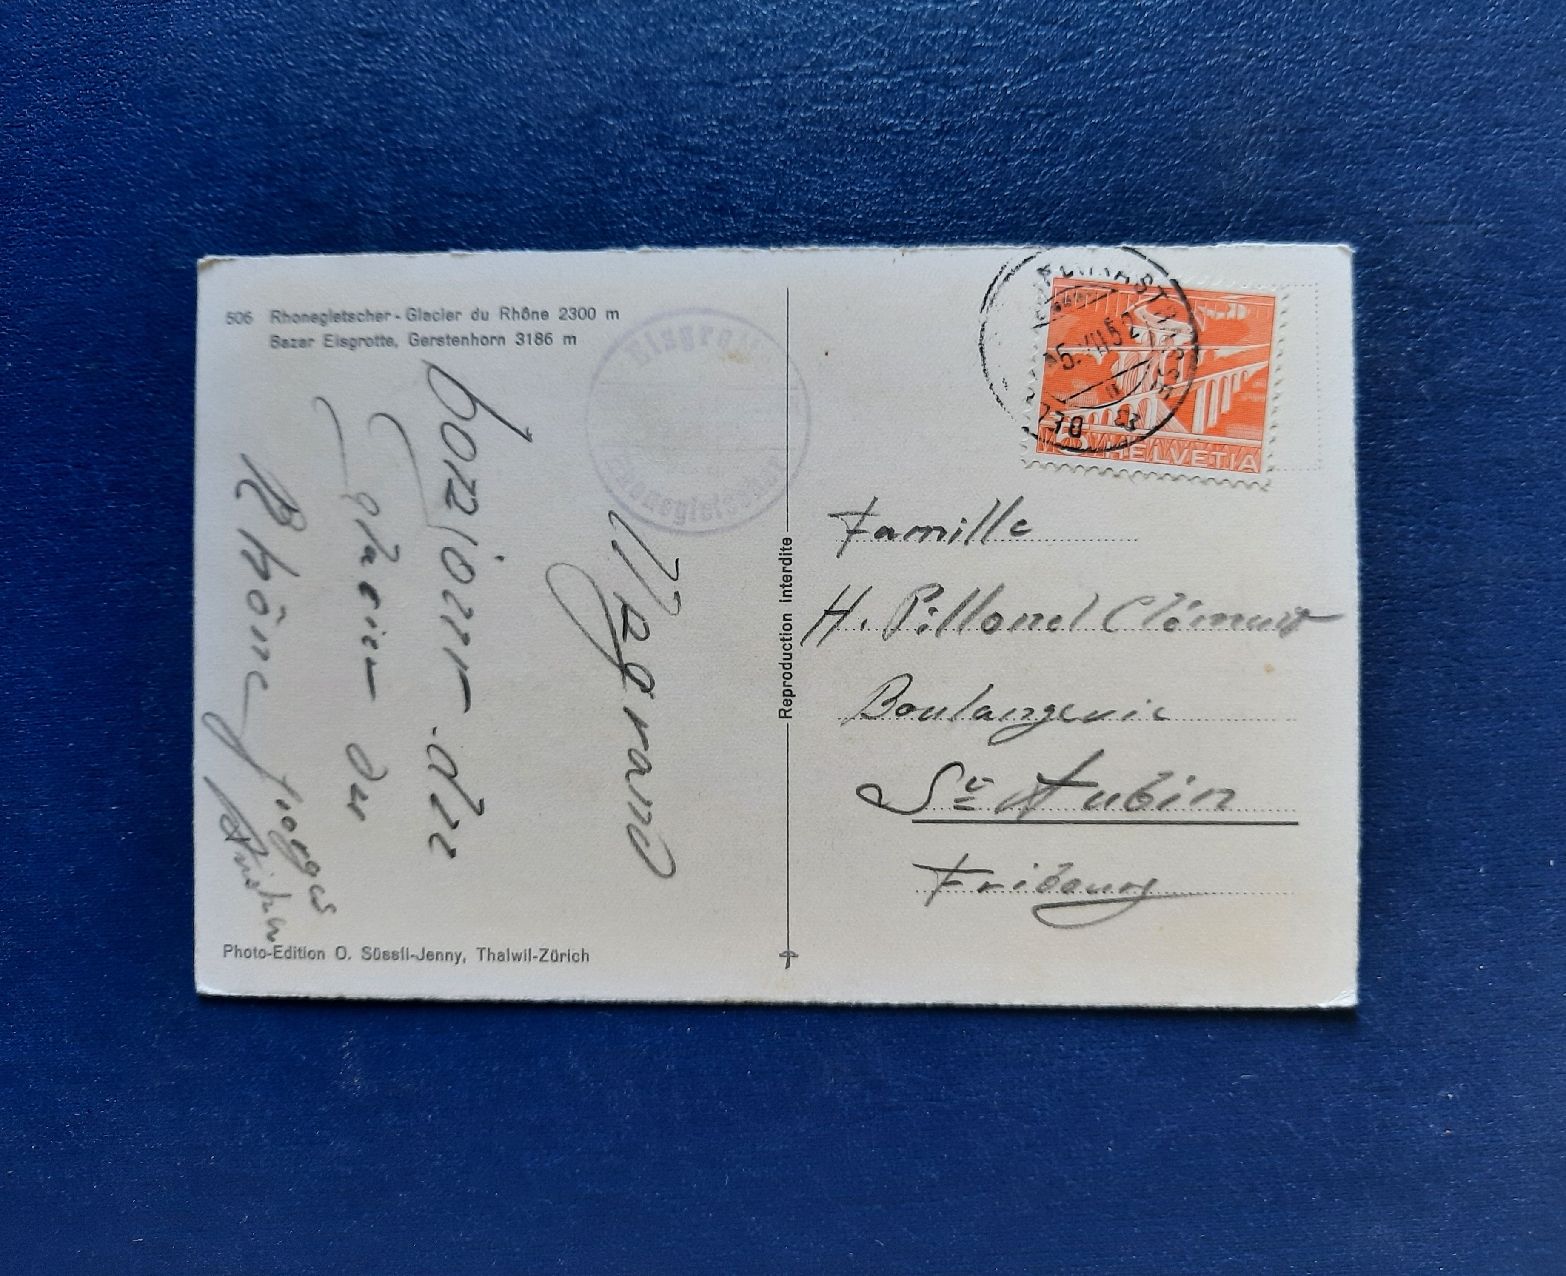 506 Rhonegletscher - Glacier du Rhône 2300 m
Bazar Eisgrotte, Gerstenhorn 3186 m
Eisgrotte
Rhonegletscher
Un grand
bonjour du
glacier du
Rhône
Photo-Edition O. Süssli-Jenny, Thalwil-Zürich
Reproduction interdite
5.VII.52
HELVETIA
Famille
H. Pillonel Clément
Boulangerie
St Aubin
Fribourg